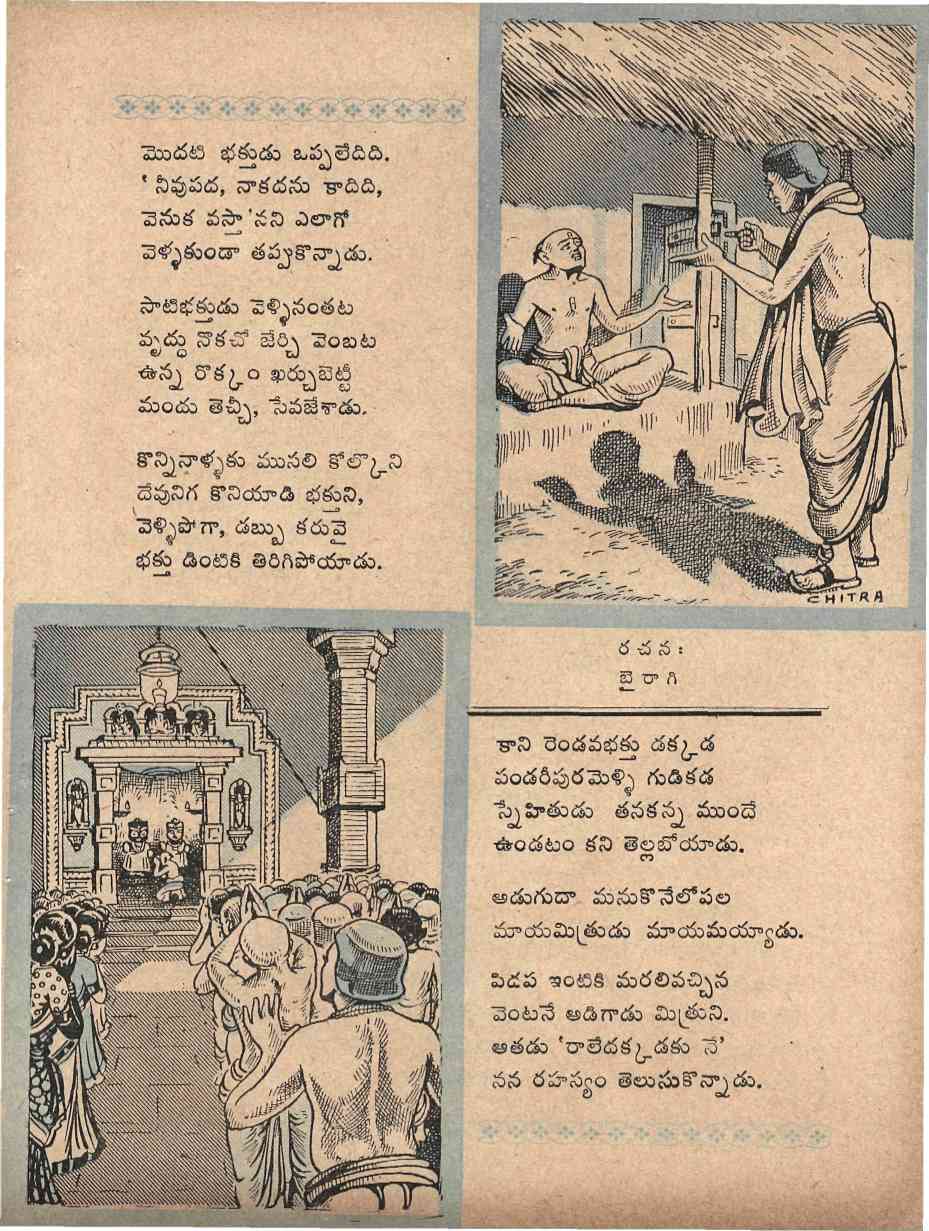 మొదటి భక్తుడు ఒప్పలేదిది.
‘నీవుపద, నాకదను కాదిది,
వెనుక వస్తా’నని ఎలాగో
వెళ్ళకుండా తప్పుకొన్నాడు.
సాటిభక్తుడు వెళ్ళినంతట
వృద్ధు నొకచో జేర్చి వెంబట
ఉన్న రొక్కం ఖర్చుబెట్టీ
మందు తెచ్చీ, సేవజేశాడు.
కొన్నినాళ్ళకు ముసలి కోల్కొని
దేవునిగ కొనియాడి భక్తుని,
వెళ్ళిపోగా, డబ్బు కరువై
భక్తు డింటికి తిరిగిపోయాడు.
CHITRA
రచన:
బైరాగి
కాని రెండవభక్తు డక్కడ
పండరీపురమెళ్ళి గుడికడ
స్నేహితుడు తనకన్న ముందే
ఉండటం కని తెల్లబోయాడు.
అడుగుదా మనుకొనేలోపల
మాయమిత్రుడు మాయమయ్యాడు.
పిడప ఇంటికి మరలివచ్చిన
వెంటనే అడిగాడు మిత్రుని.
ఆతడు ‘రాలేదక్కడకు నే’
నన రహస్యం తెలుసుకొన్నాడు.